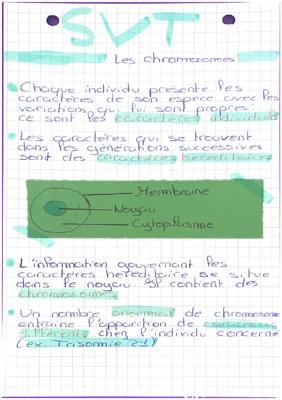 SVT
Les chromosomes
Chaque individu présente les
caractères de son espèce avec les
variations qui lui sont propres :
ce sont les caractères individuels
Les caractères qui se trouvent
dans les générations successives
sont des caractères héréditaires
Membrane
Noyau
Cytoplasme
L'information gouvernant les
caractères héréditaire se situe
dans le noyau. Il contient des
chromosomes.
Un nombre anormal de chromosome
entraine l'apparition de caractères
différents chez l'individu concerné
(ex: Trisomie 21)